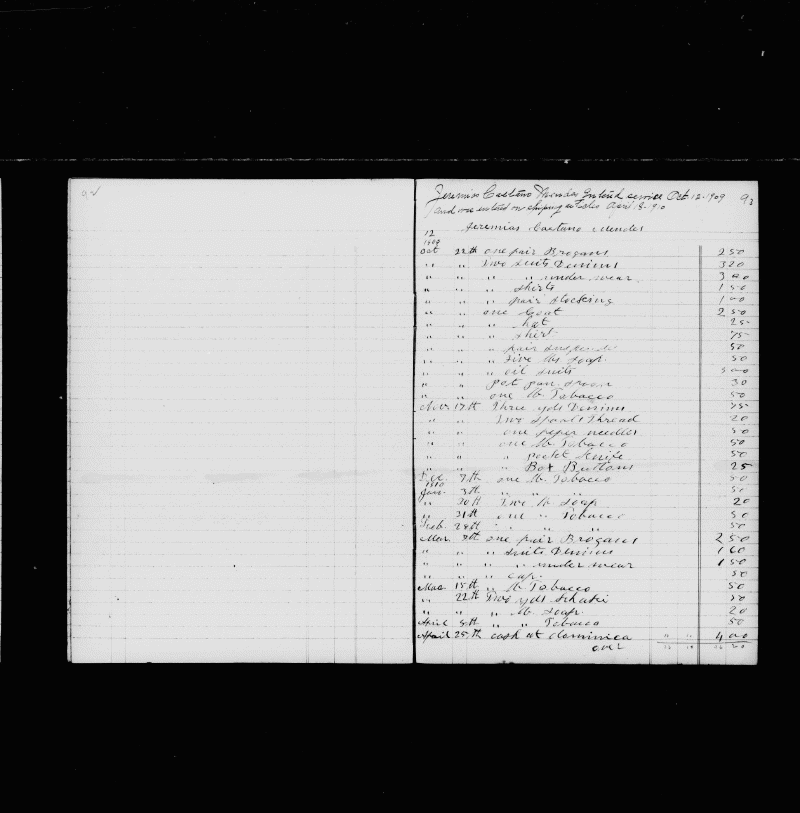 92
Jeremias Caetano Mendes Entered service Oct 12-1909 93
and one entered on shiping articles April 8-910
Jeremias Caetano Mendes
12
1909
Oct 22th one pair Brogans 250
" " Two suits Denims 320
" " " " under wear 300
" " " shirts 150
" " " pair stocking 100
" " one Coat 250
" " " hat 25
" " " shirt 75
" " " pair suspend 50
" " " five lbs soap 50
" " " oil suits 300
" " pot pan spoon 30
" " one lb Tobacco 50
Nov 17th Three yds Denims 75
" " Two Spools Thread 20
" " one paper needles 50
" " one lb Tobacco 50
" " " pocket Knife 50
" " " Box Buttons 25
Dec 7th one lb Tobacco 50
1910
Jan. 3th " " " 50
" 30th Two lb soap 20
" 31th one " Tobacco 50
Feb. 28th " " " 50
Mar 8th one pair Brogans 250
" " " suits Denims 160
" " " " under wear 150
" " " cap. 50
Mar 15th " lb Tobacco 50
" 22th Two yds Khaki 50
" " " lb soap 20
April 8th " " Tobacco 50
April 25th cash at dominica " " 400
over